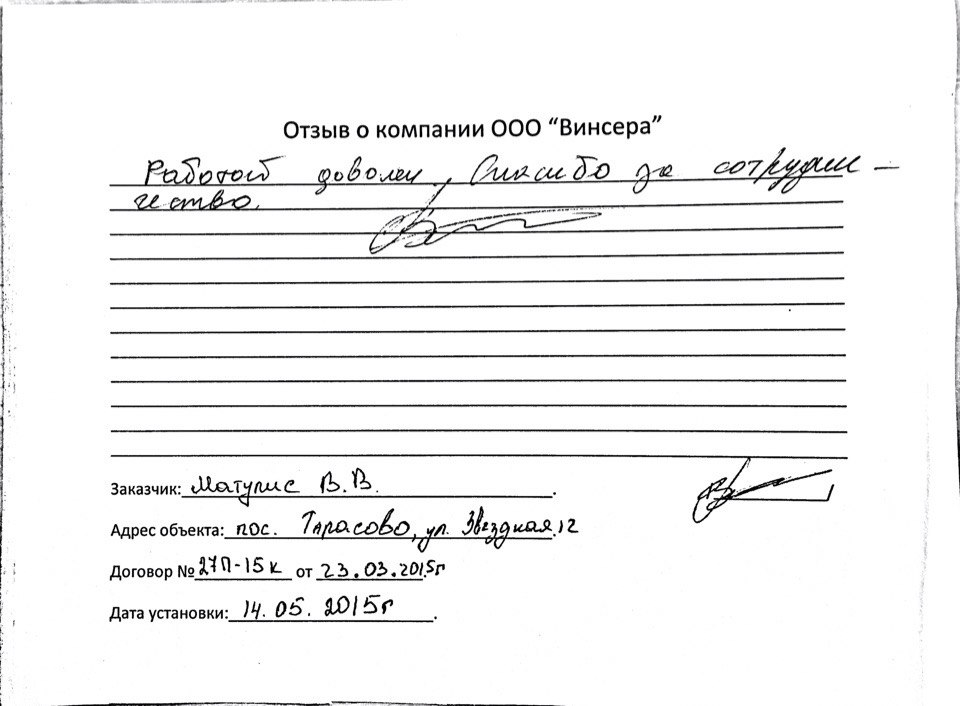 Отзыв о компании ООО “Винсера”
Работой доволен, Спасибо за сотрудни-
чество.
Заказчик: Матулис В.В.
Адрес объекта: пос. Тарасово, ул. Звездная.12
Договор № 27П-15к от 23.03.2015г
Дата установки: 14.05.2015г.